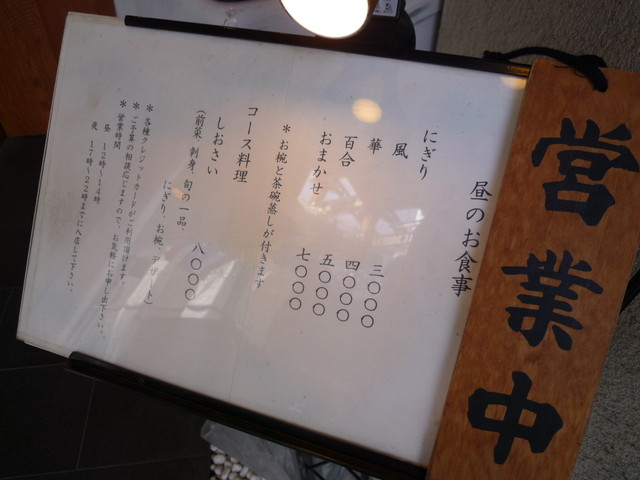 営業中
昼のお食事
にぎり
風 三〇〇〇
華 四〇〇〇
百合 五〇〇〇
おまかせ 七〇〇〇
＊お椀と茶碗蒸しが付きます
コース料理
しおさい 八〇〇〇
(前菜、刺身、旬の一品、
にぎり、お椀、デザート)
＊各種クレジットカードがご利用頂けます。
＊ご予算の相談応じますので、お気軽にお申し出下さい。
＊営業時間
昼 12時〜14時
夜 17時〜22時までに入店して下さい。